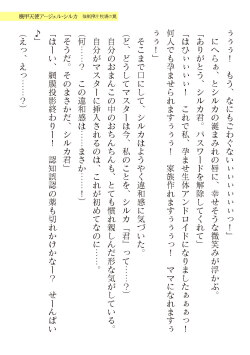 機甲天使アージェル・シルカ
ぅぅぅ! もう、なにもこわくないぃぃぃぃぃぃっ!
にへらぁ、とシルカの涎まみれの唇に、幸せそうな微笑みが浮かぶ。
「ありがとう、シルカ君。パスワードを解除してくれて」
「はひぃぃぃぃ! これで私、孕ませ生体アンドロイドになりましたぁぁっ!
何人でも孕ませられますぅぅっ! 家族作れますぅぅぅっ! ママになれますぅ
ぅぅぅ!」
そこまで口にして、シルカはようやく違和感に気づいた。
(ど、どうしてマスターは今、私のことを、シルカ「君」って……?)
自分のおまんこの中のおちんちんも、とても慣れ親しんだ形な気がしている。
自分がマスターに挿入されるのは、これが初めてなのに……。
(何……? この違和感は……まさか……!)
「そうだ、そのまさかだ、シルカ君」
「はーい、網膜投影終わり! 認知誤認の薬も切れかけかなー? せーんぱい
♪」
(えっ、えっ……?)